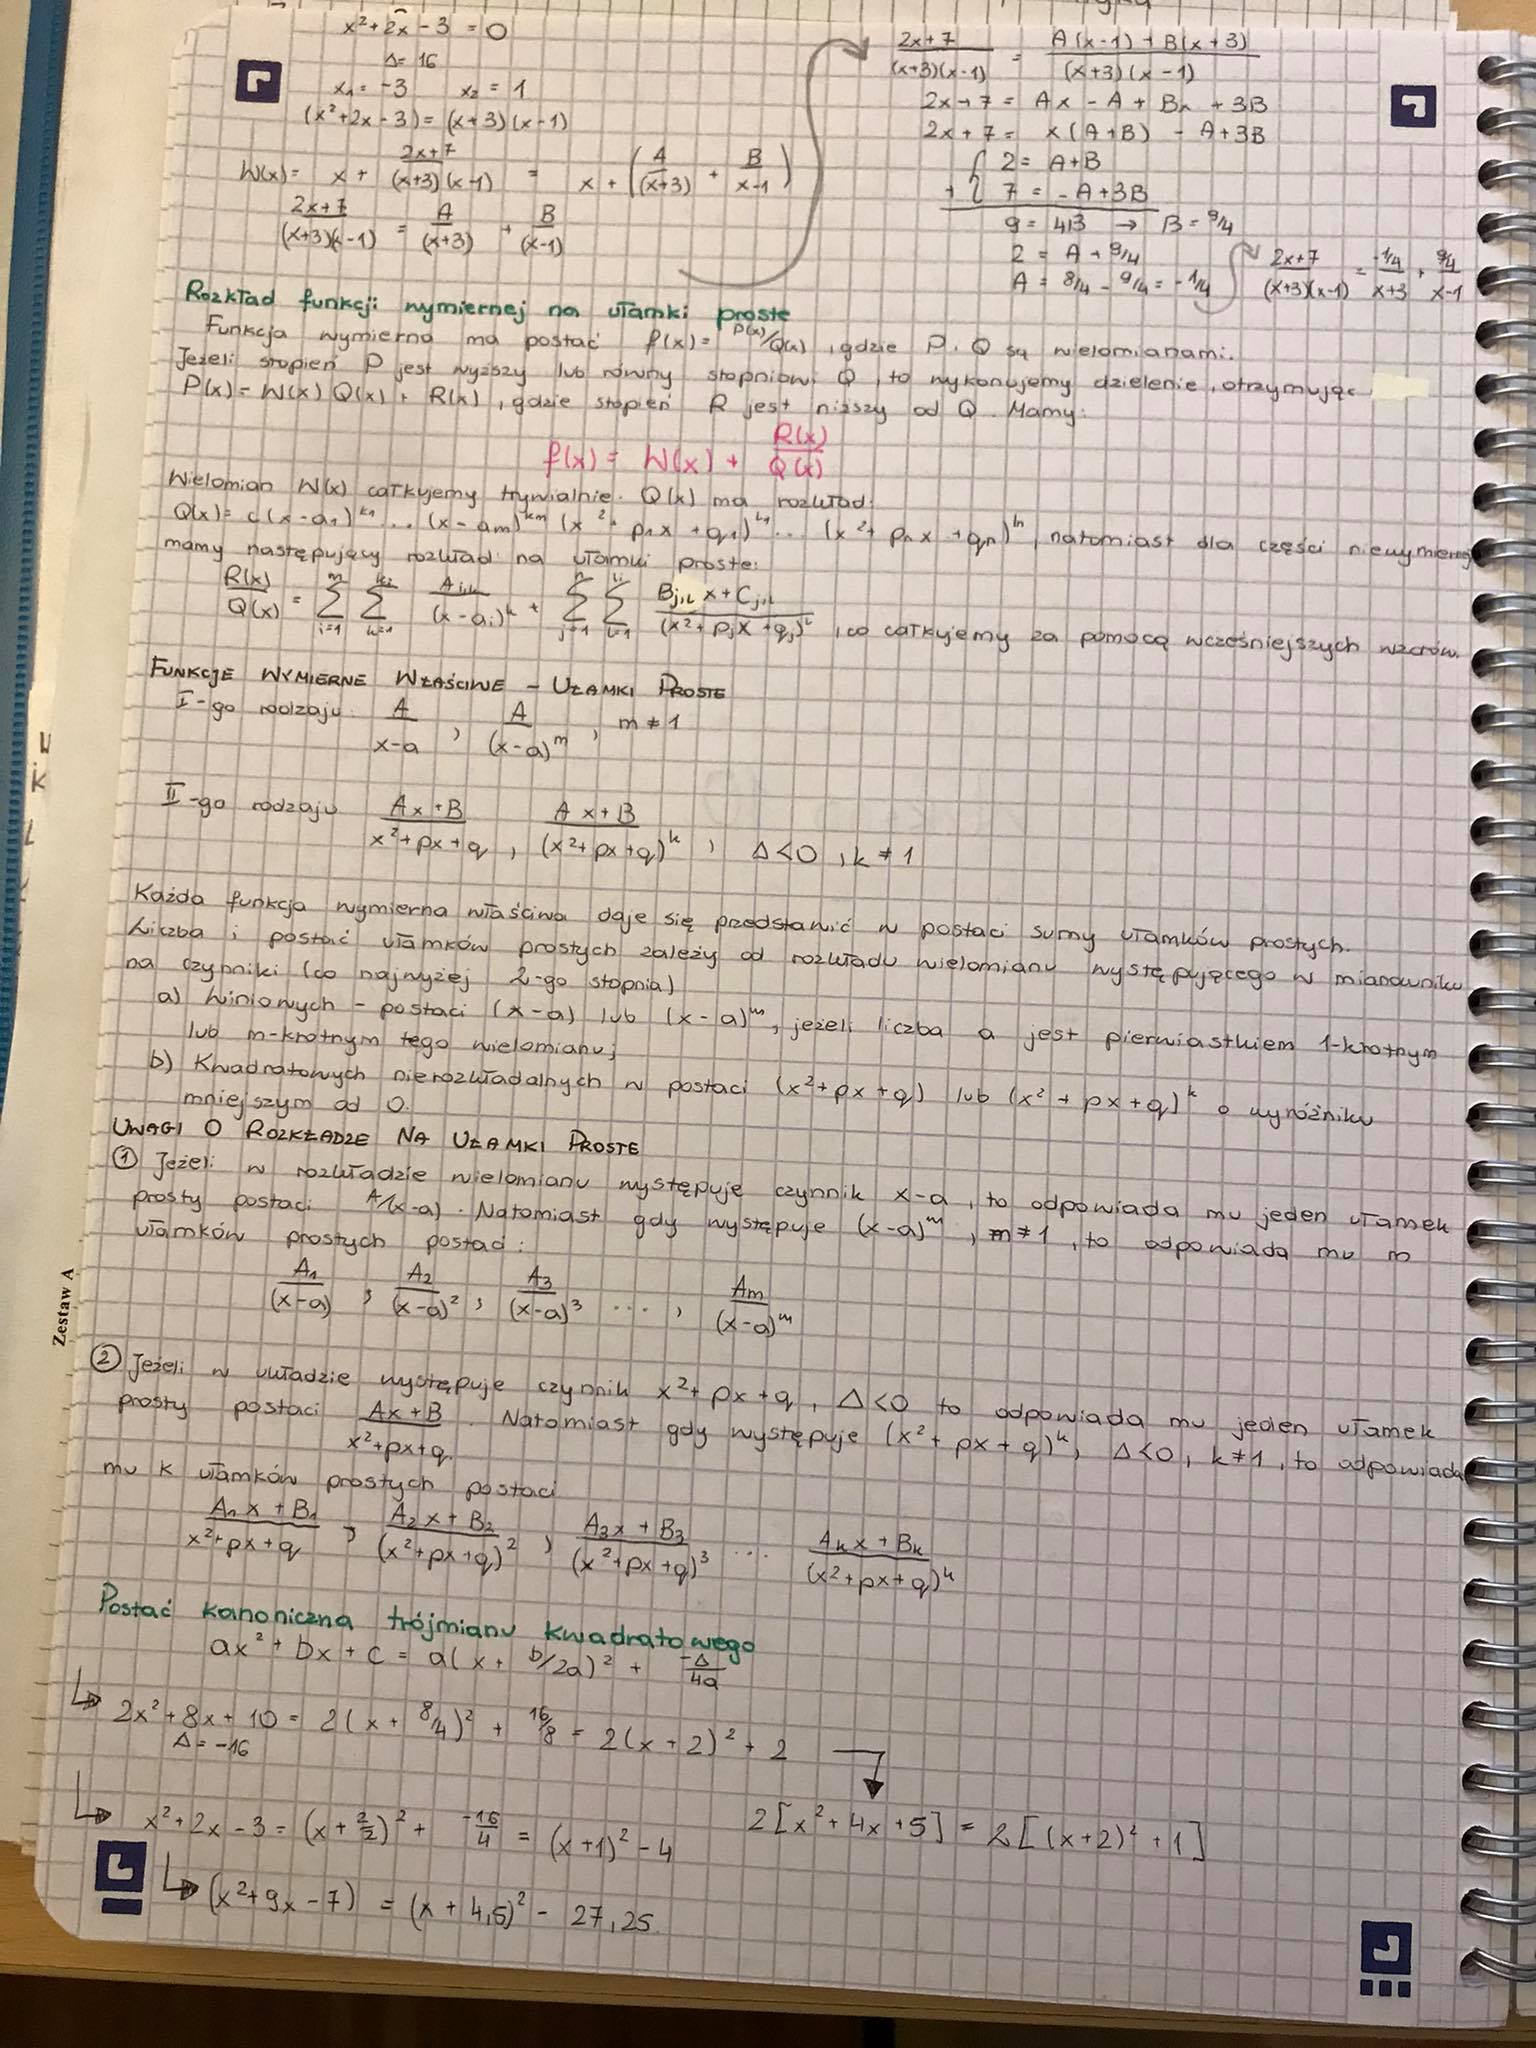 x²+2x-3=0
Δ=16
x₁=-3 x₂=1
(x²+2x-3)=(x+3)(x-1)
W(x)= x + 2x+7/(x+3)(x-1) = x + (A/(x+3) + B/x-1)
2x+7/(x+3)(x-1) = A/(x+3) + B/(x-1)
2x+7/(x+3)(x-1) = A(x-1)+B(x+3)/(x+3)(x-1)
2x+7 = Ax - A + Bx + 3B
2x+7 = x(A+B) - A+3B
{ 2 = A+B
+ { 7 = -A+3B
9 = 4B → B = 9/4
2 = A + 9/4
A = 8/4 - 9/4 = -1/4
2x+7/(x+3)(x-1) = -1/4/x+3 + 9/4/x-1
Rozkład funkcji wymiernej na ułamki proste
Funkcja wymierna ma postać f(x)= P(x)/Q(x), gdzie P, Q są wielomianami.
Jeżeli stopień P jest wyższy lub równy stopniowi Q, to wykonujemy dzielenie, otrzymując
P(x)=W(x)Q(x)+R(x), gdzie stopień R jest niższy od Q. Mamy:
f(x) = W(x) + R(x)/Q(x)
Wielomian W(x) całkujemy trywialnie. Q(x) ma rozkład:
Q(x)= c(x-a₁)^k₁ ... (x-aₘ)^kₘ (x²+p₁x+q₁)^l₁ ... (x²+pₙx+qₙ)^lₙ, natomiast dla części niewymiernej
mamy następujący rozkład na ułamki proste:
R(x)/Q(x) = m∑i=1 kᵢ∑k=1 A i,k/(x-aᵢ)^k + n∑j=1 lⱼ∑l=1 B j,l x+C j,l/(x²+pⱼx+qⱼ)^l, co całkujemy za pomocą wcześniejszych wzorów.
FUNKCJE WYMIERNE WŁAŚCIWE - UŁAMKI PROSTE
I-go rodzaju: A/x-a, A/(x-a)^m, m≠1
II-go rodzaju Ax+B/x²+px+q, Ax+B/(x²+px+q)^k, Δ<0, k≠1
Każda funkcja wymierna właściwa daje się przedstawić w postaci sumy ułamków prostych.
Liczba i postać ułamków prostych zależy od rozkładu wielomianu występującego w mianowniku
na czynniki (co najwyżej 2-go stopnia)
a) Liniowych - postaci (x-a) lub (x-a)^m, jeżeli liczba a jest pierwiastkiem 1-krotnym
lub m-krotnym tego wielomianu;
b) Kwadratowych nierozkładalnych w postaci (x²+px+q) lub (x²+px+q)^k o wyróżniku
mniejszym od 0.
UWAGI O ROZKŁADZE NA UŁAMKI PROSTE
① Jeżeli w rozkładzie wielomianu występuje czynnik x-a, to odpowiada mu jeden ułamek
prosty postaci A/(x-a). Natomiast gdy występuje (x-a)^m, m≠1, to odpowiada mu m
ułamków prostych postaci:
A₁/(x-a), A₂/(x-a)², A₃/(x-a)³ ..., Aₘ/(x-a)^m
② Jeżeli w układzie występuje czynnik x²+px+q, Δ<0 to odpowiada mu jeden ułamek
prosty postaci Ax+B/x²+px+q. Natomiast gdy występuje (x²+px+q)^k, Δ<0, k≠1, to odpowiada
mu k ułamków prostych postaci
A₁x+B₁/x²+px+q, A₂x+B₂/(x²+px+q)², A₃x+B₃/(x²+px+q)³ ... Aₖx+Bₖ/(x²+px+q)^k
Postać kanoniczna trójmianu kwadratowego
ax²+bx+c = a(x+ b/2a)² + -Δ/4a
2x²+8x+10 = 2(x+ 8/4)² + 16/8 = 2(x+2)²+2
Δ=-16
2[x²+4x+5] = 2[(x+2)²+1]
x²+2x-3=(x+2/2)²+ -16/4 = (x+1)²-4
(x²+9x-7) = (x+4,5)² - 27,25
Zestaw A